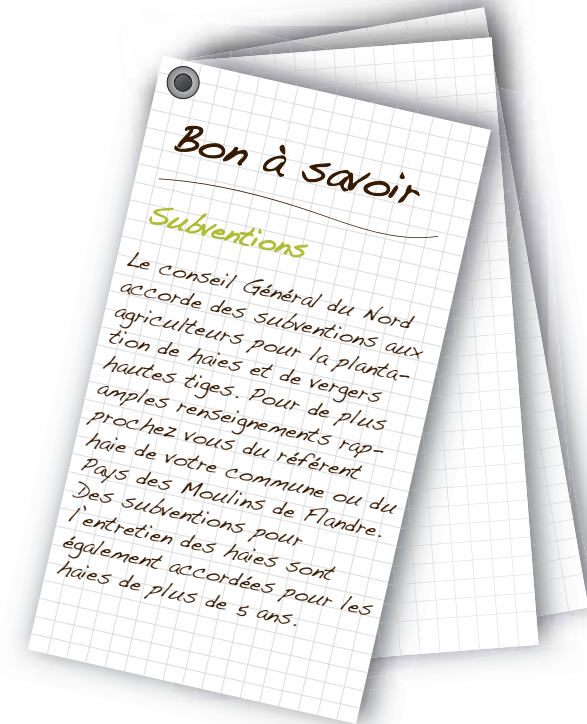 Bon à savoir
Subventions
Le conseil Général du Nord
accorde des subventions aux
agriculteurs pour la planta-
tion de haies et de vergers
hautes tiges. Pour de plus
amples renseignements rap-
prochez vous du référent
haie de votre commune ou du
Pays des Moulins de Flandre.
Des subventions pour
l'entretien des haies sont
également accordées pour les
haies de plus de 5 ans.